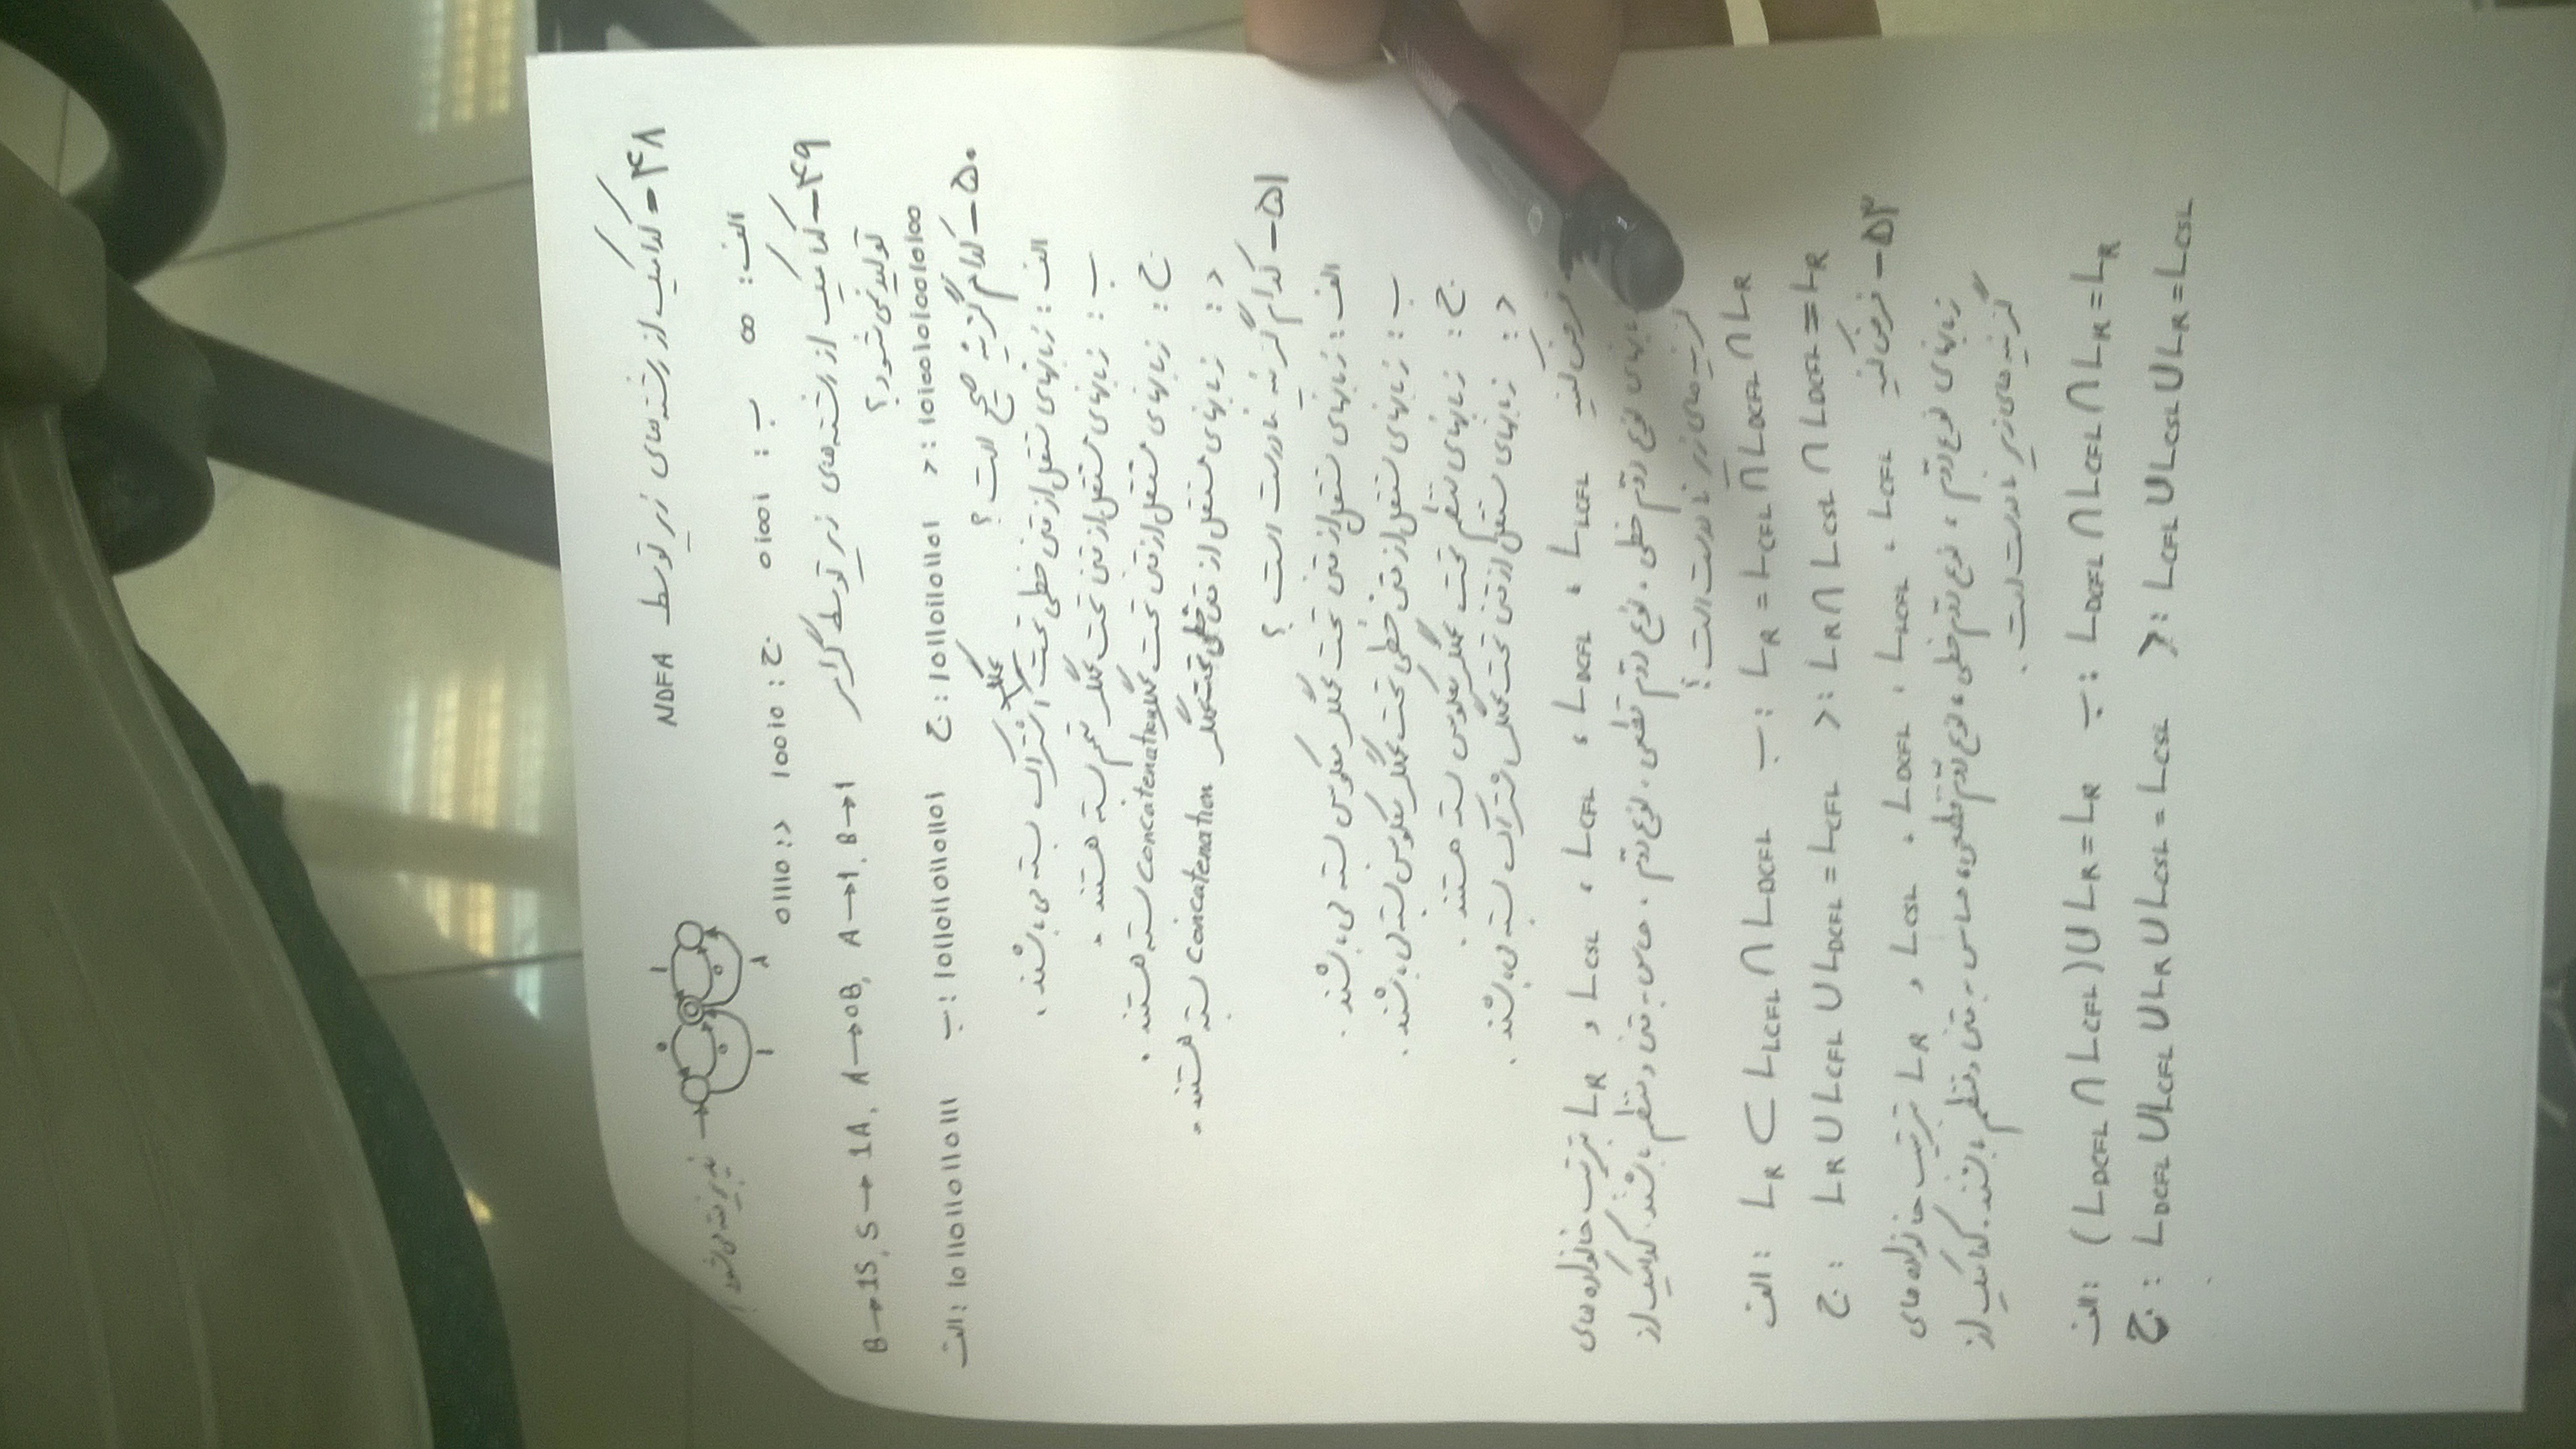 ۴۸- کدامیک از رشته‌های زیر توسط NDFA پذیرفته می‌شود؟
0 1
0 0
1 λ
الف: 00 ب: 01001 ج: 10010 د: 01110
۴۹- کدامیک از رشته‌های زیر توسط گرامر B→1S, S→1A, A→0B, A→1, B→1
تولید نمی‌شود؟
الف: 10110110110111 ب: 101101101101101 ج: 101101101101 د: 101001010010100
۵۰- کدام گزینه صحیح است؟
الف: زبانهای مستقل از متن خطی تحت عملگر اشتراک بسته می‌باشند.
ب: زبانهای مستقل از متن تحت عملگر متمم بسته هستند.
ج: زبانهای مستقل از متن تحت عملگر concatenation بسته هستند.
د: زبانهای مستقل از متن خطی تحت عملگر concatenation بسته هستند.
۵۱- کدام گزینه نادرست است؟
الف: زبانهای مستقل از متن تحت عملگر معکوس بسته می‌باشند.
ب: زبانهای مستقل از متن خطی تحت عملگر معکوس بسته می‌باشند.
ج: زبانهای منظم تحت عملگر معکوس بسته هستند.
د: زبانهای مستقل از متن تحت عملگر اشتراک بسته می‌باشند.
فرض کنید LLCFL ، LDCFL ، LCFL ، LCSL و LR بترتیب خانواده‌های
زبانهای نوع دوم خطی، نوع دوم قطعی، نوع دوم، حساس به متن و منظم باشند. کدامیک از
گزینه‌های زیر نادرست است؟
الف: LR ⊂ LLCFL ∩ LDCFL ب: LR = LCFL ∩ LDCFL ∩ LR
ج: LR ∪ LCFL ∪ LDCFL = LCFL د: LR ∩ LCSL ∩ LDCFL = LR
۵۳- فرض کنید LCFL ، LLCFL ، LDCFL ، LCSL و LR بترتیب خانواده‌های
زبانهای نوع دوم، نوع دوم خطی، نوع دوم قطعی، حساس به متن و منظم باشند. کدامیک از
گزینه‌های زیر نادرست است.
الف: (LDCFL ∩ LCFL) ∪ LR = LR ب: LDCFL ∩ LCFL ∩ LR = LR
ج: LDCFL ∪ LCFL ∪ LR ∪ LCSL = LCSL د: LCFL ∪ LCSL ∪ LR = LCSL